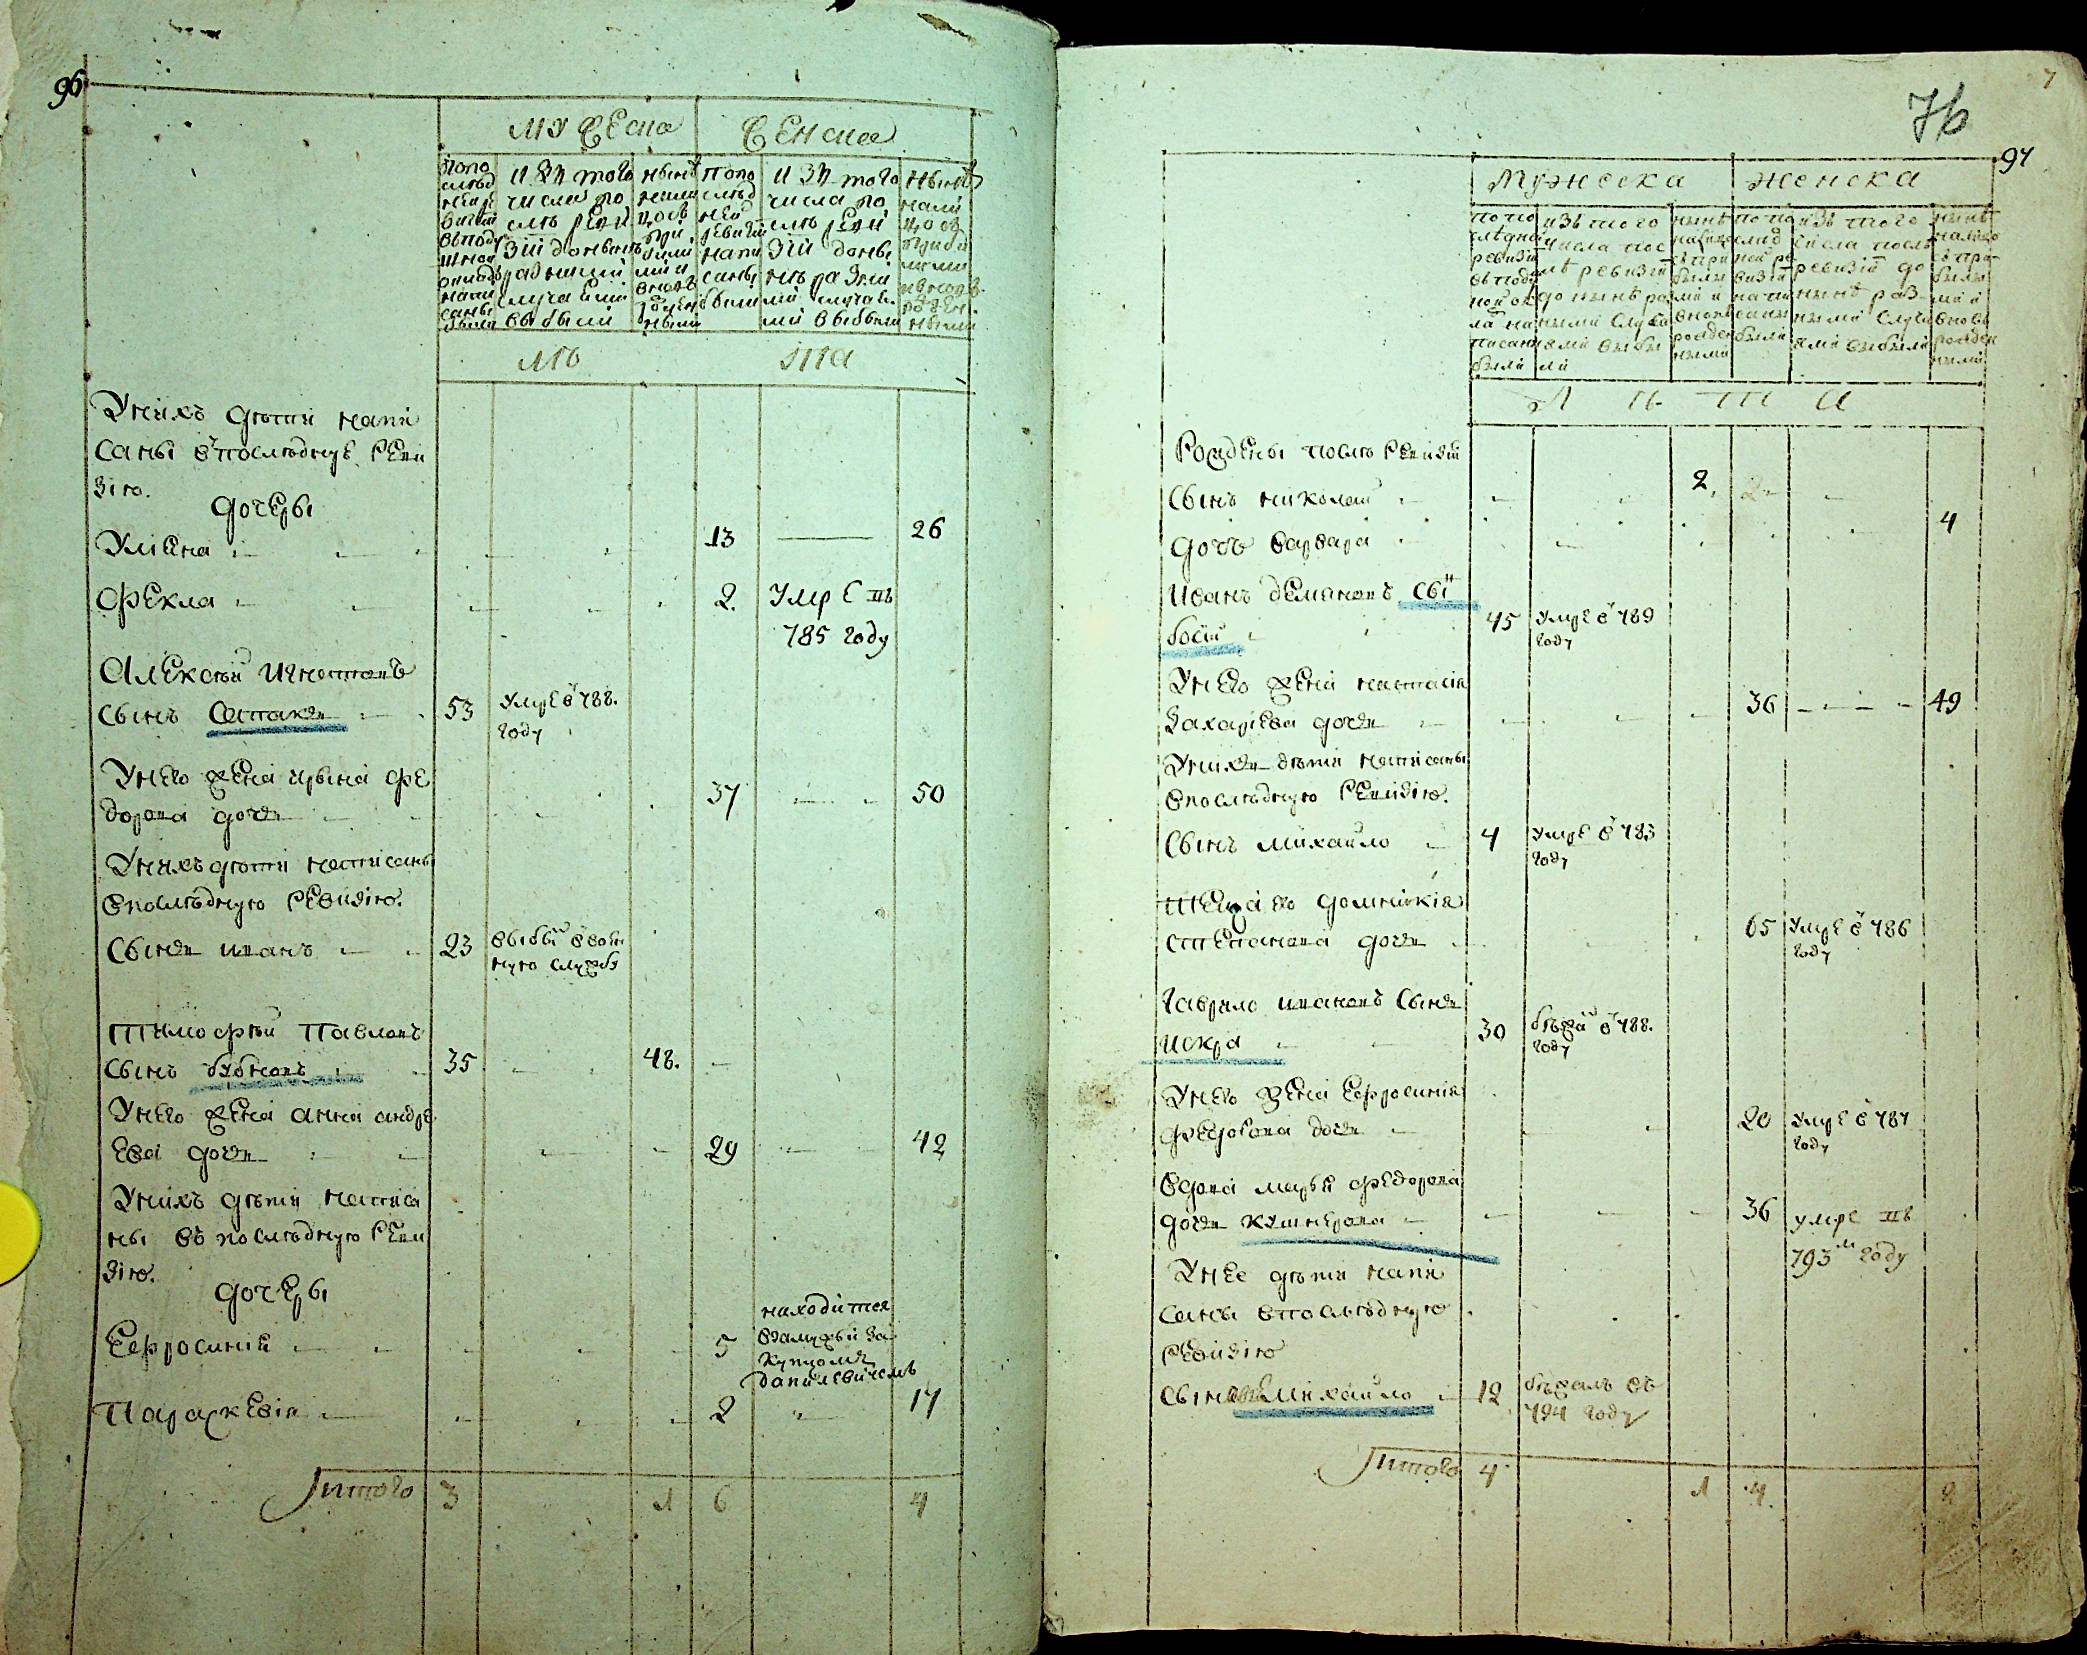 96
мужеска женска
попо
слѣд
ней ре
визии
въподу
шной
окладъ
напи
саны
были
изъ того
числа по
слѣ реви
зіи донынѣ
разными
случаями
выбыли
нынѣ
нали
цо съ
при
были
ми и
вновь
рожден
ными
попо
слѣд
ней
ревизіи
напи
саны
были
изъ того
числа по
слѣ реви
зіи доны
нѣ разны
ми случая
ми выбыли
нынѣ
нали
цо съ
прибы
лыми
и вновь
рожден
ными
лѣ та
Унихъ дѣти напи
саны в послѣднуѣ реви
зію.
дочеры
Улиана 13 26
Фекла 2. Умре въ
785 году
Алексѣй Игнатовъ
сынъ Саппакъ 53 умре в 788.
году
Унего жена Ирына Фе
дорова дочь 37 50
Унихъ дѣти написаны
впослѣдную ревизію.
Сынъ иванъ 23 выбы в воин
ную службу
Тимофѣй Павловъ
сынъ бубновъ 35 48.
Унего жена анна андре
ева дочь 29 42
Унихъ дѣти написа
ны въ послѣдную реви
зію.
дочеры
Ефросиния 5 находится
взамужьи за
купцомъ
данилевичемъ
Параскевія 2 17
Итого 3 1 6 4
7
76
97
Мужеска женска
по по
слѣдней
ревизіи
въ поду
шной ок
ладъ на
писаны
были
изъ того
числа пос
лѣ ревизіи
до нынѣ ра
зными случа
ями выбы
ли
нынѣ
налицо
съ при
были
ми и
вновь
рожден
ными
по по
слѣд
ней ре
визіи
напи
саны
были
изъ того
числа послѣ
ревизіи до
нынѣ раз
ными случа
ями выбыли
нынѣ
налицо
съ при
былы
ми и
вновь
рожден
ными
Л ѣ т а
Рождены послѣ ревизіи
Сынъ николай 2.
дочь варвара 4
Иванъ демяновъ сынъ
45 умре в 789
году
Унего жена настасія
Захарієва дочь 36 49
Унихъ дѣти написаны
впослѣдную ревизію.
Сынъ михайло 4 умре в 783
году
теща его домникія
степанова дочь 65 умре в 786
году
гаврило ивановъ сынъ
искра 30 бежа в 788.
году
Унего жена Ефросинія
федорова дочь 20 умре в 787
году
вдова марья федорова
дочь кушнерова 36 умре въ
793м году
Унее дѣти напи
саны впослѣдную
ревизію
Сынъ михайло 12 бежалъ въ
794 году
Итого 4 1 4. 2